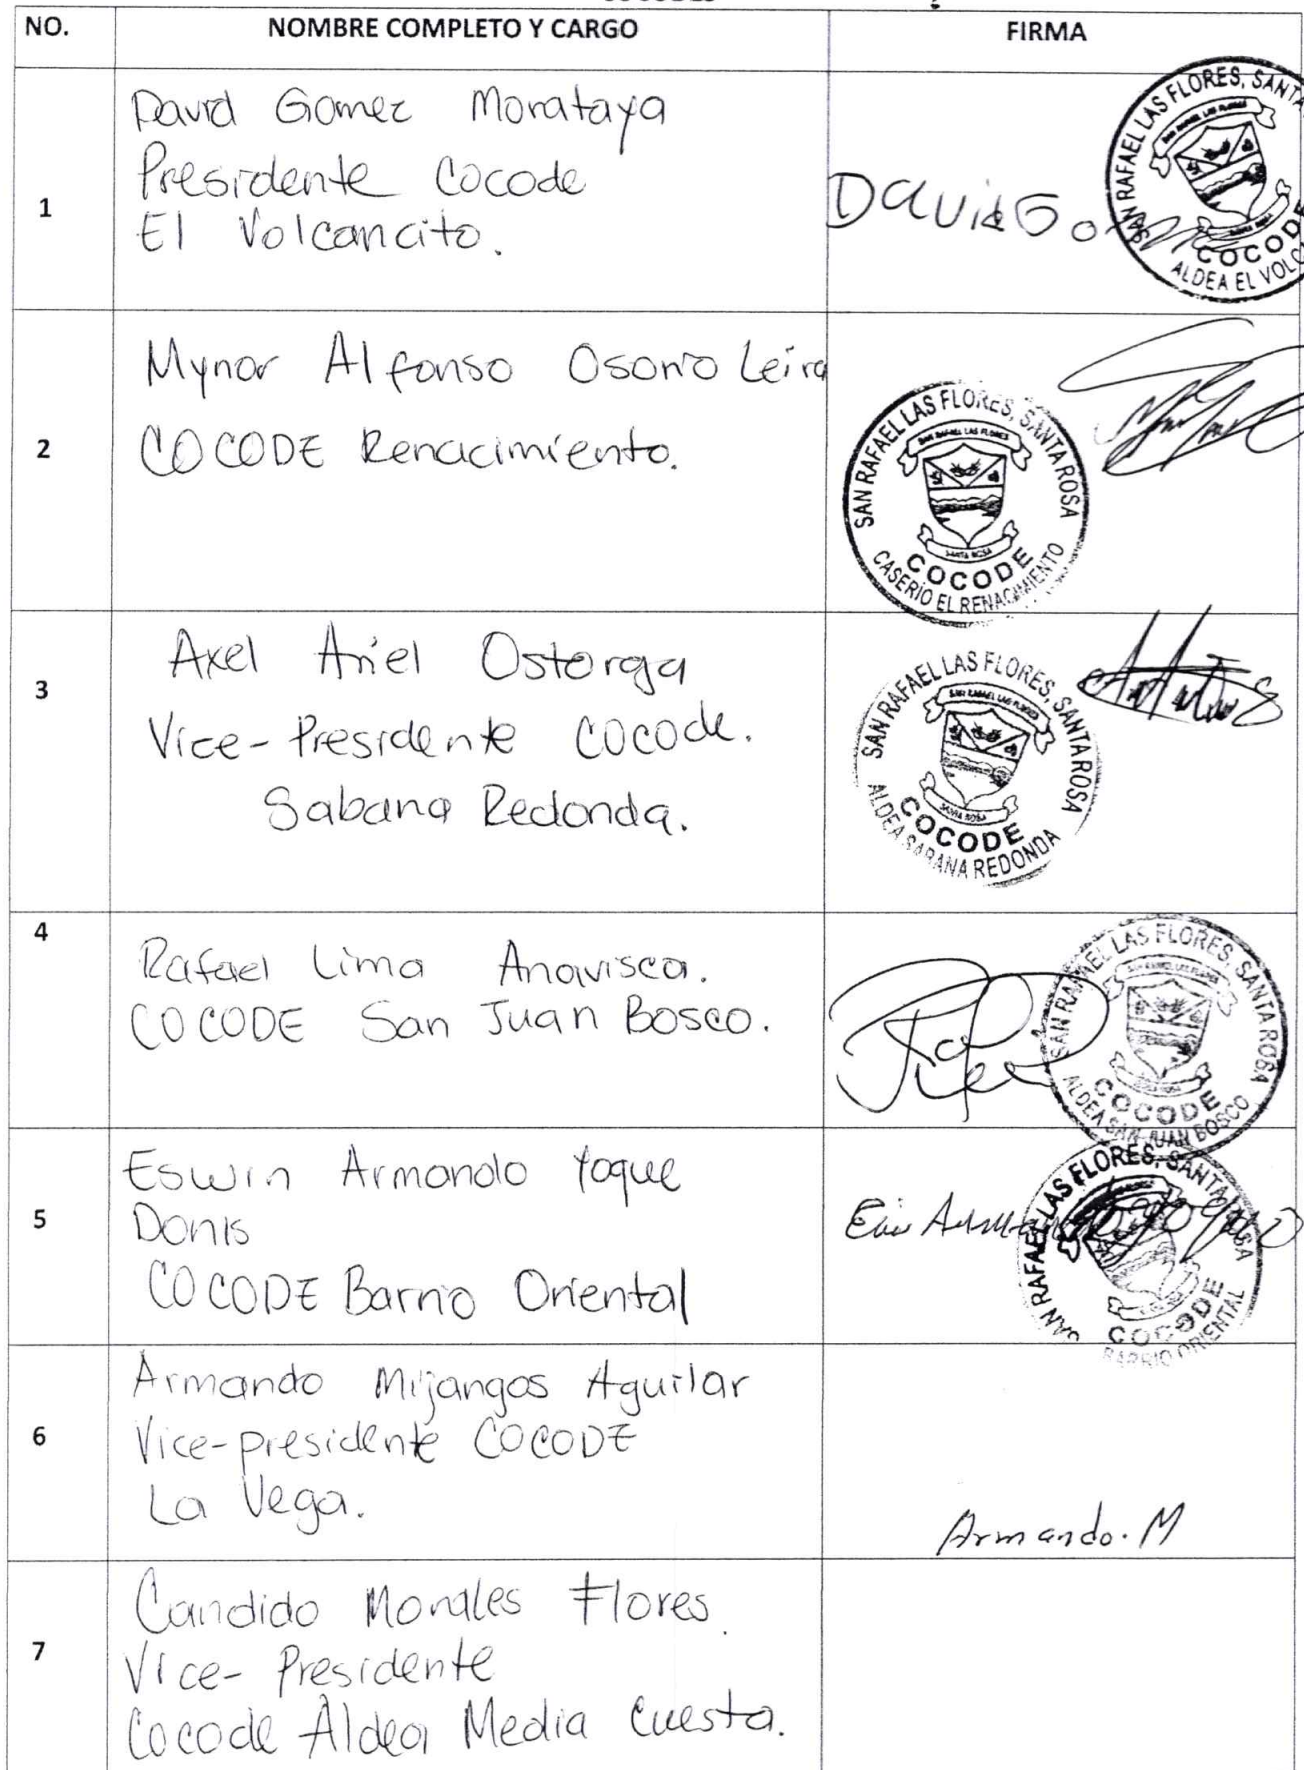 NO. NOMBRE COMPLETO Y CARGO FIRMA
1
David Gomez Morataya
Presidente Cocode
El Volcancito.
David Go
SAN RAFAEL LAS FLORES, SANTA
COCODE
ALDEA EL VOLC
2
Mynor Alfonso Osorio Leira
COCODE Renacimiento.
SAN RAFAEL LAS FLORES, SANTA ROSA
SAN RAFAEL LAS FLORES
SANTA ROSA
COCODE
CASERIO EL RENACIMIENTO
3
Axel Ariel Ostorga
Vice-Presidente COCOde.
Sabana Redonda.
SAN RAFAEL LAS FLORES, SANTA ROSA
SAN RAFAEL LAS FLORES
SANTA ROSA
COCODE
ALDEA SABANA REDONDA
4
Rafael Lima Anavisca.
COCODE San Juan Bosco.
SAN RAFAEL LAS FLORES, SANTA ROSA
COCODE
ALDEA SAN JUAN BOSCO
5
Eswin Armando Yoque
Donis
COCODE Barrio Oriental
SAN RAFAEL LAS FLORES, SANTA ROSA
COCODE
BARRIO ORIENTAL
6
Armando Mijangos Aguilar
Vice-presidente COCODE
La Vega.
Armando. M
7
Candido Morales Flores.
Vice-Presidente
Cocode Aldea Media Cuesta.